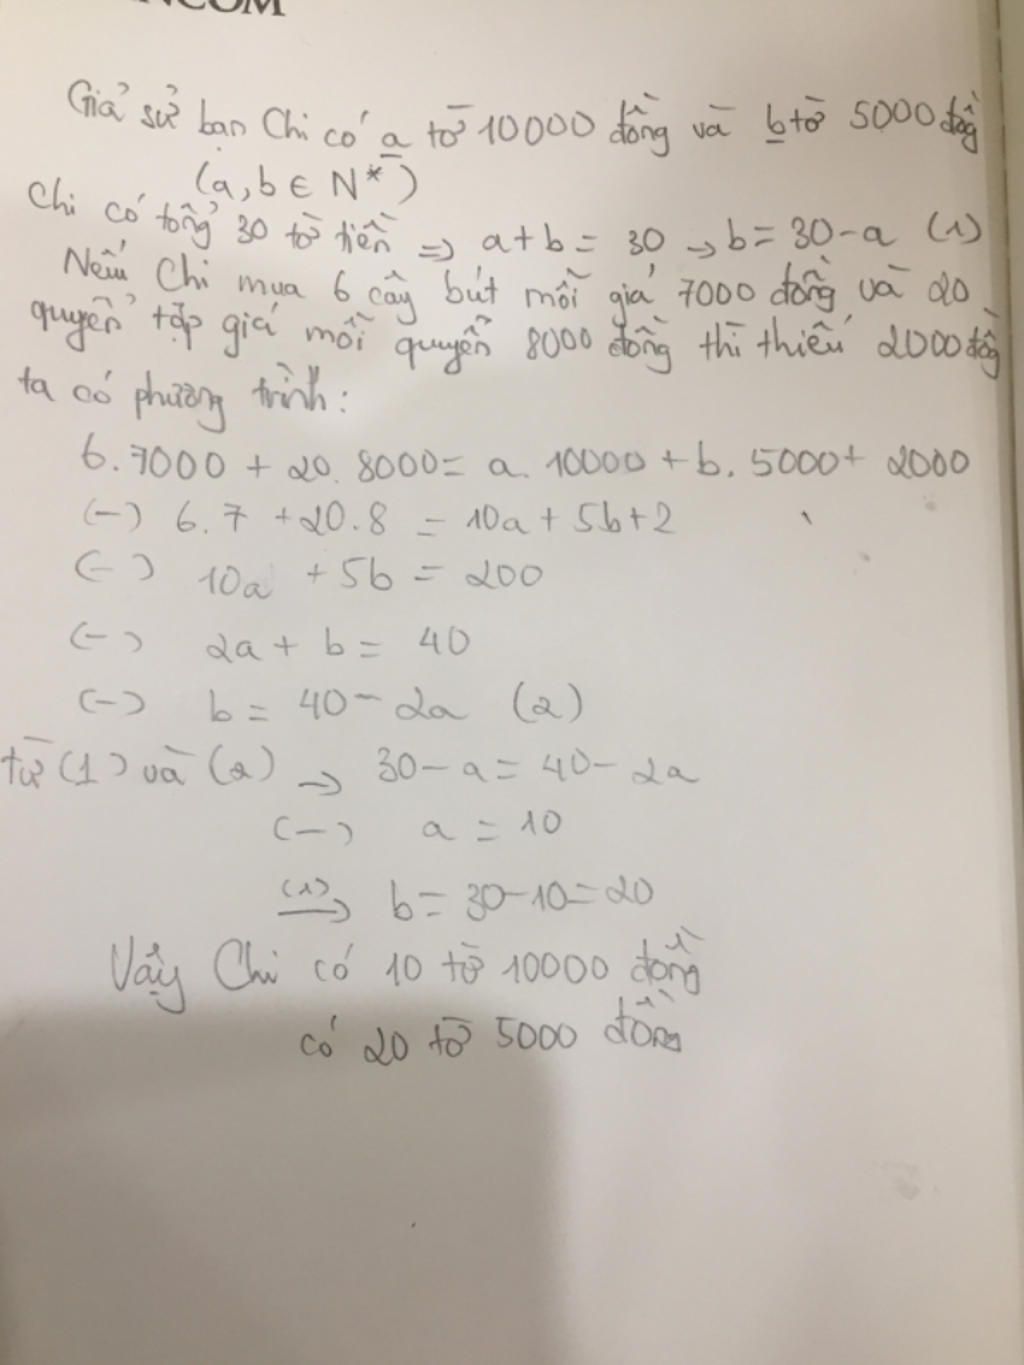 Giả sử bạn Chi có a tờ 10000 đồng và b tờ 5000 đồng
(a, b ∈ N*)
Chi có tổng 30 tờ tiền => a + b = 30 → b = 30 - a (1)
Nếu Chi mua 6 cây bút mỗi giá 7000 đồng và 20
quyển tập giá mỗi quyển 8000 đồng thì thiếu 2000 đồng
ta có phương trình:
6.7000 + 20.8000 = a.10000 + b.5000 + 2000
(-) 6.7 + 20.8 = 10a + 5b + 2
(-) 10a + 5b = 200
(-) 2a + b = 40
(-) b = 40 - 2a (2)
từ (1) và (2) → 30 - a = 40 - 2a
(-) a = 10
(1) → b = 30 - 10 = 20
Vậy Chi có 10 tờ 10000 đồng
có 20 tờ 5000 đồng